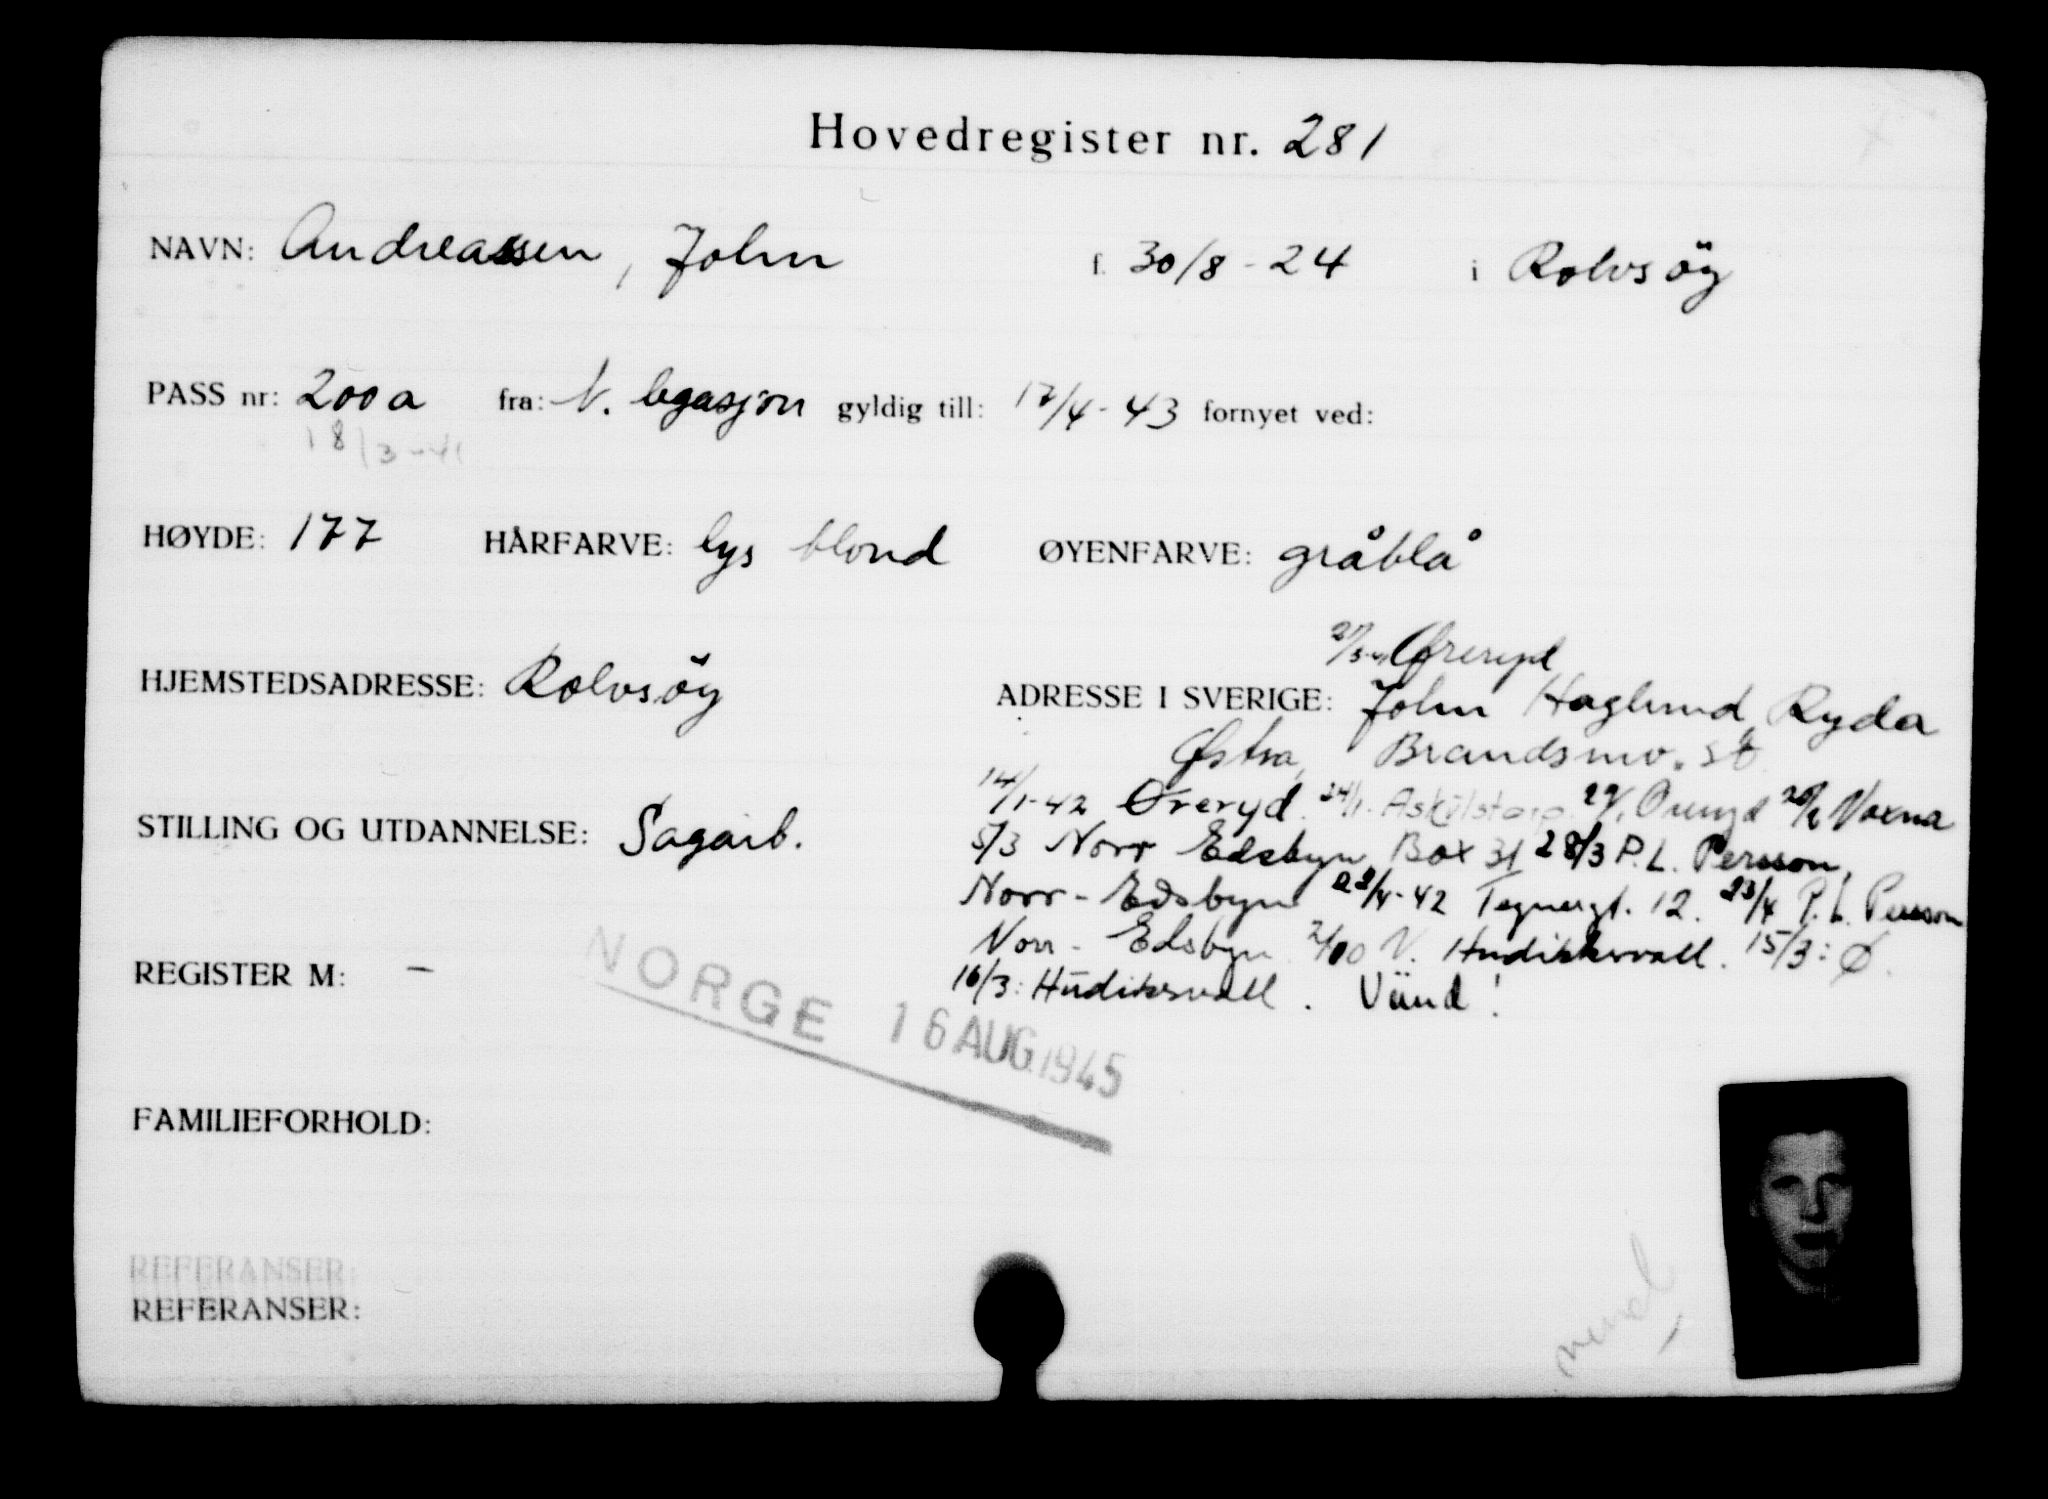 Hovedregister nr. 281
NAVN: Andreassen, John f. 30/8-24 i Rolvsöy
PASS nr: 200a fra: N. legasjon gyldig till: 17/4-43 fornyet ved:
18/3-41
HØYDE: 177 HÅRFARVE: lys blond ØYENFARVE: gråblå
Øreryd
HJEMSTEDSADRESSE: Rolvsöy ADRESSE I SVERIGE: John Haglund, Ryda
Østra, Brandsmo. st
14/1-42 Øreryd. 24/1. Askilstorp. 29/1 Öreryd Voxna
STILLING OG UTDANNELSE: Sagarb.
5/3 Norr Edsbyn, Box 31 28/3 P.L. Persson,
Norr-Edsbyn 22/4-42 Tegnergt. 12. 23/4 P.L. Persson
Norr-Edsbyn. N. Hudiksvall. 15/3: Ø.
REGISTER M: –
16/3: Hudiksvall. Vünd!
NORGE 16 AUG. 1945
FAMILIEFORHOLD:
REFERANSER:
REFERANSER: